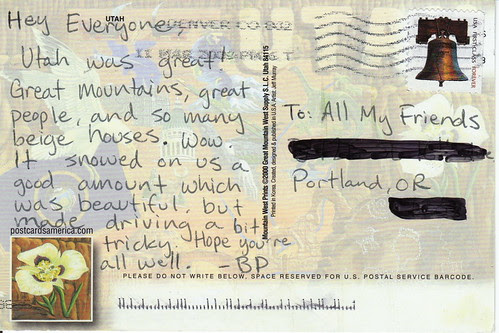 Hey Everyone,
UTAH
DENVER CO 802
11 MAR 2014 PM
Utah was great!
Great Mountains, great
people, and so many
beige houses. Wow.
It snowed on us a
good amount which
was beautiful, but
made driving a bit
tricky. Hope you're
all well. -BP
postcardsamerica.com
Mountain West Prints ©2000 Great Mountain West Supply S.L.C. Utah 84115
Printed in Korea. Created, designed & published in U.S.A. Artist: Jeff Murray
USA FIRST-CLASS FOREVER
To: All My Friends
Portland, OR
PLEASE DO NOT WRITE BELOW, SPACE RESERVED FOR U.S. POSTAL SERVICE BARCODE.